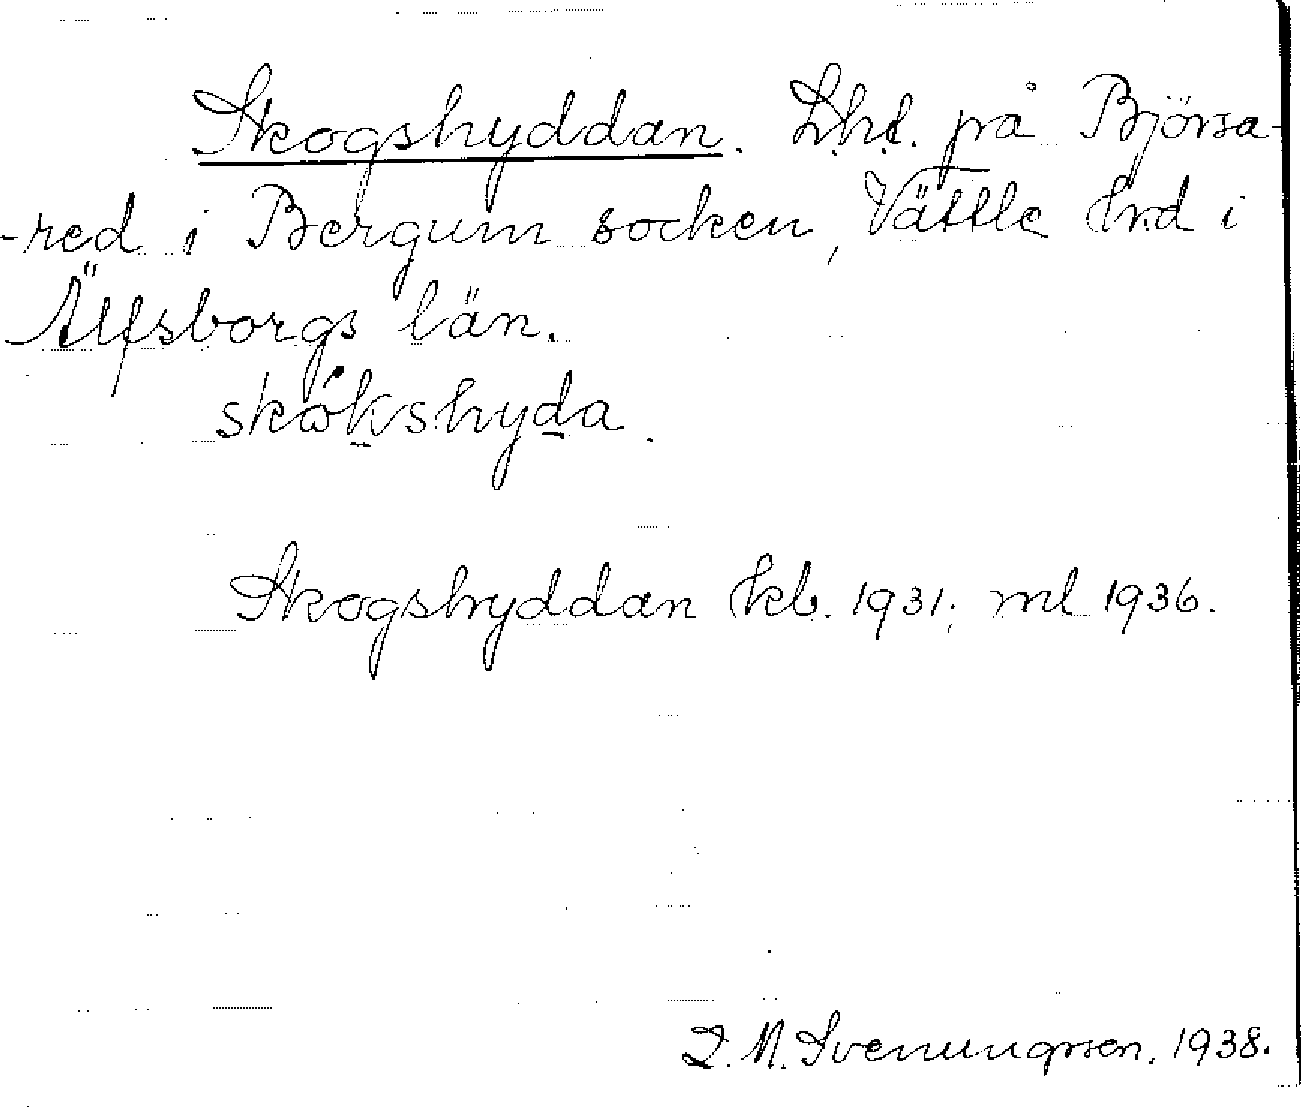 Skogshyddan. Lht. på Björsa-
-red i Bergum socken, Vättle hrd i
Älfsborgs län.
skωkshyda.
Skogshyddan kb. 1931; ml 1936.
I. M. Svenungsson. 1938.